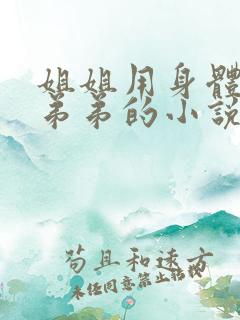 姐姐用身體
弟弟的小說
苟且和遠方
未经同意禁止转载